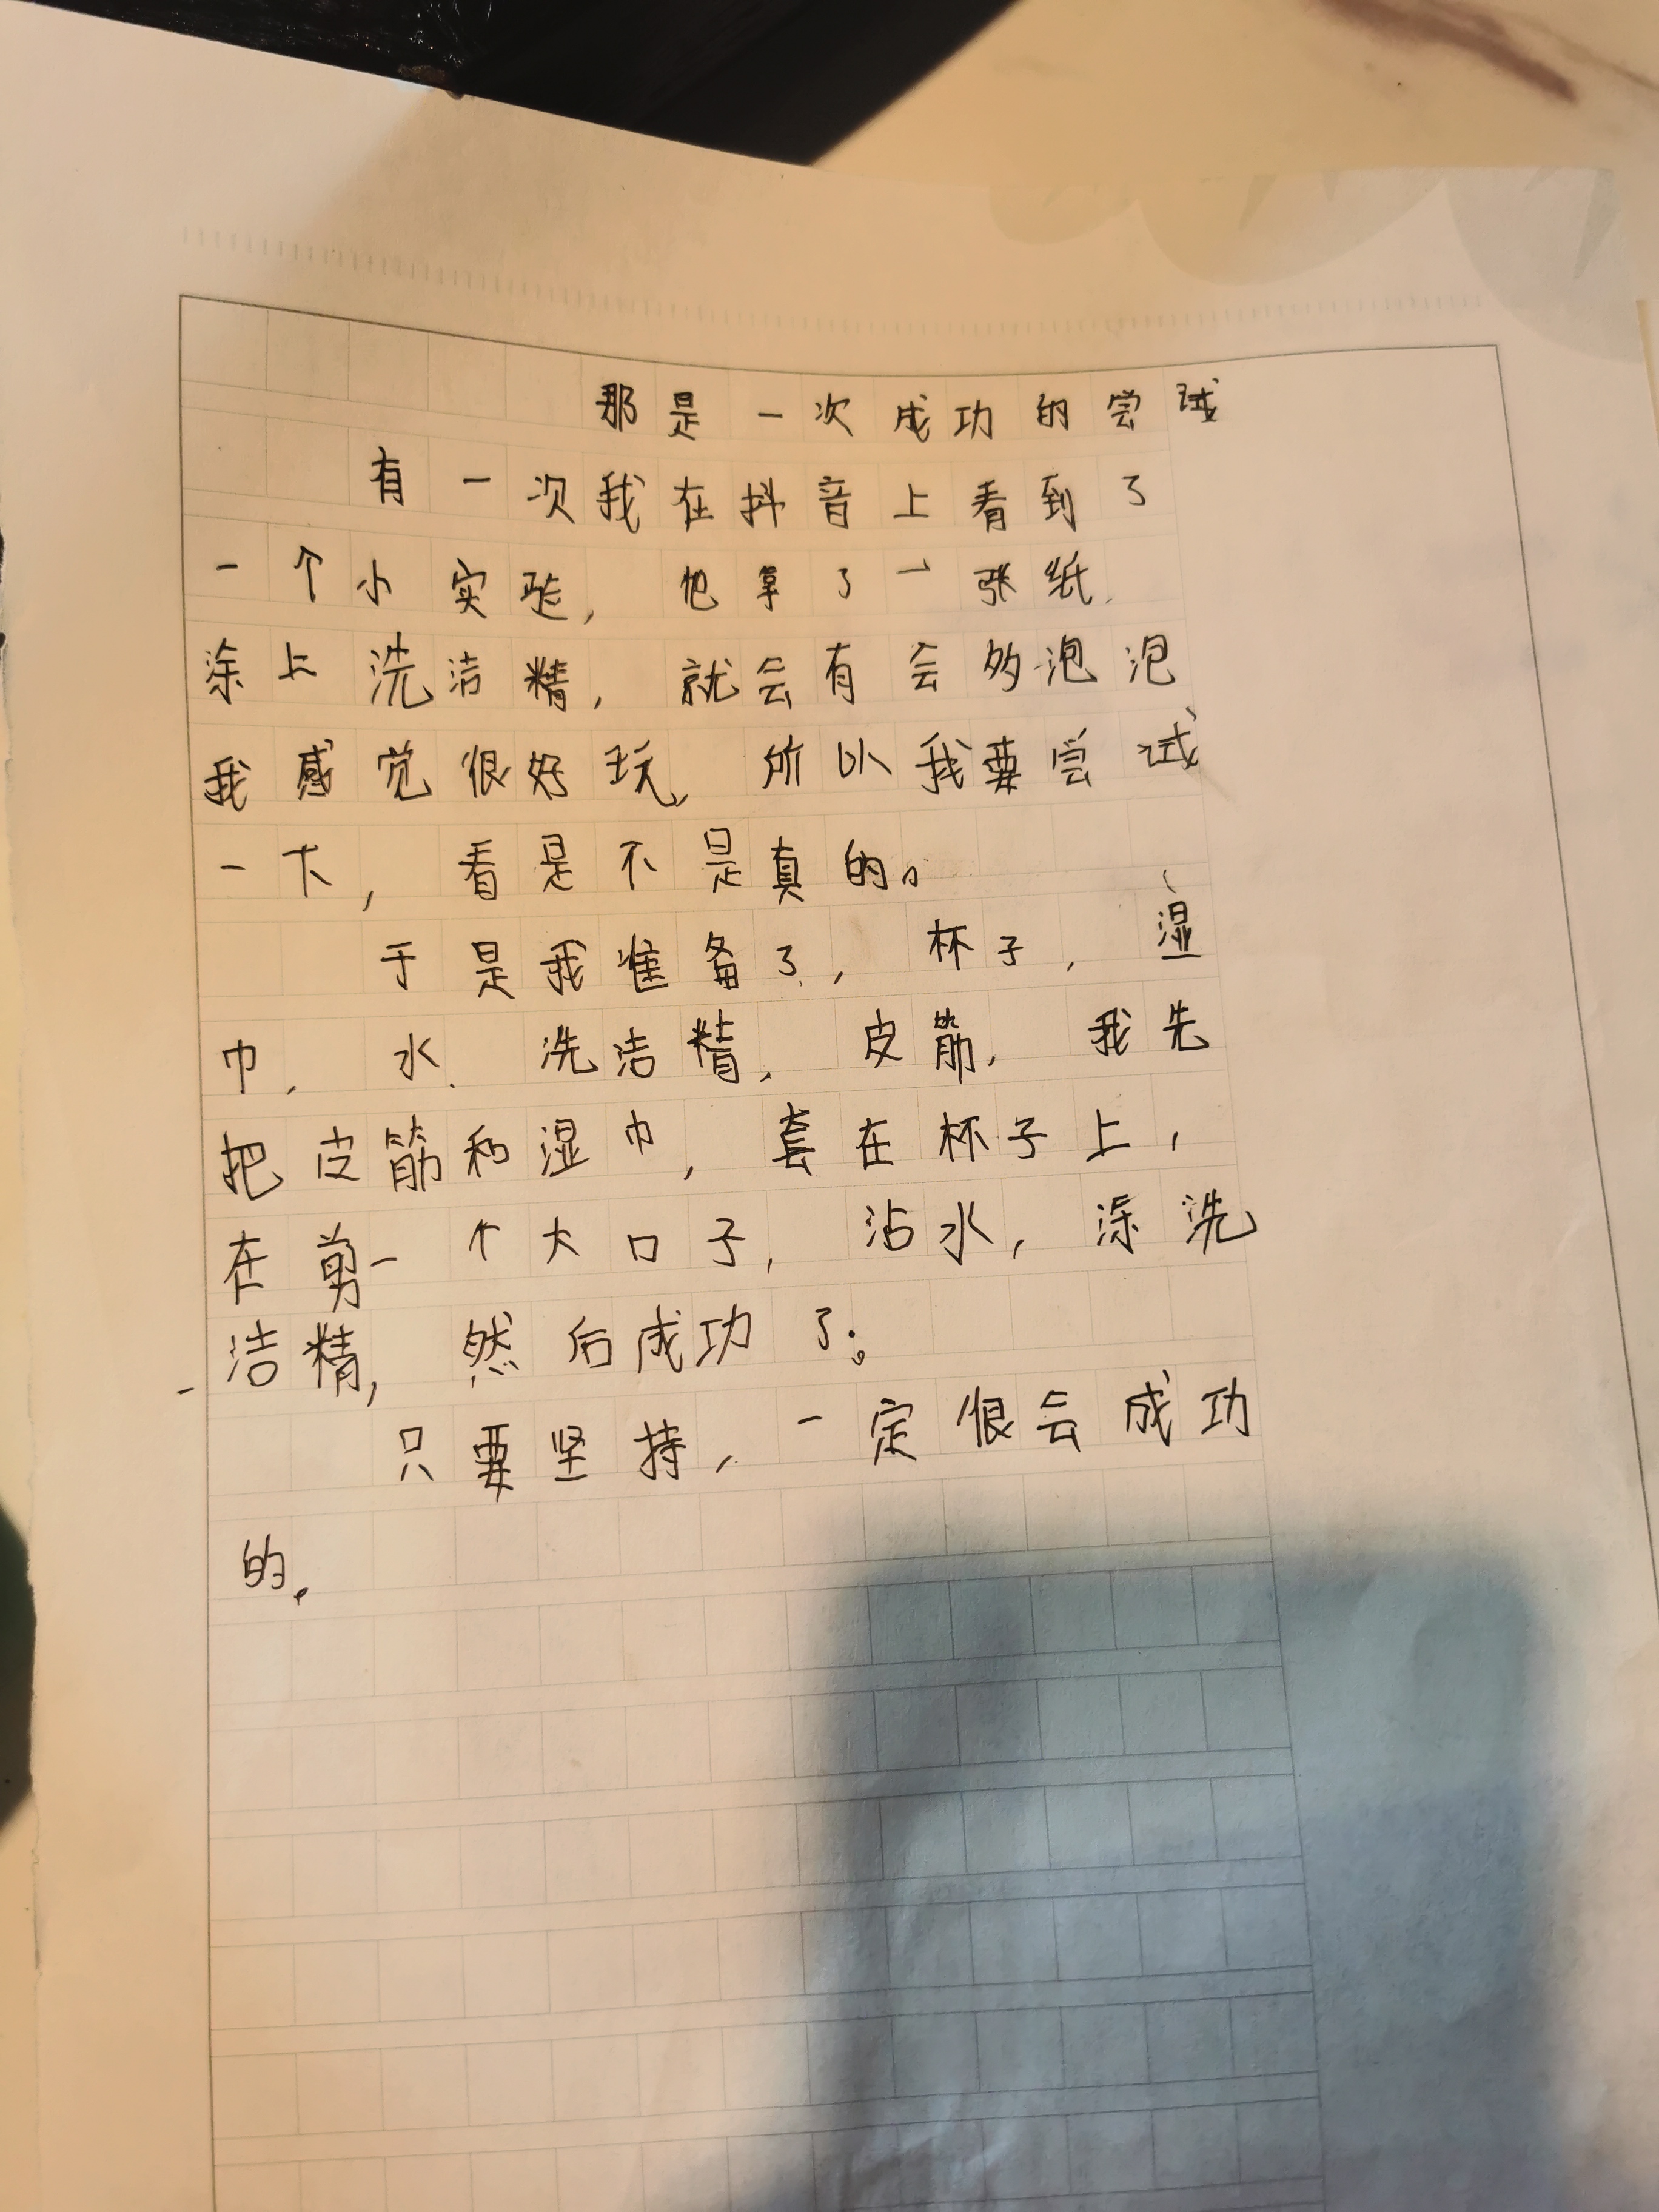 那是一次成功的尝试
有一次我在抖音上看到了
一个小实验，他拿了一张纸，
涂上洗洁精，就会有会多泡泡
我感觉很好玩，所以我要尝试
一下，看是不是真的。
于是我准备了，杯子，湿
巾，水，洗洁精，皮筋，我先
把皮筋和湿巾，套在杯子上，
在剪一个大口子，沾水，涂洗
洁精，然后成功了。
只要坚持，一定很会成功
的。